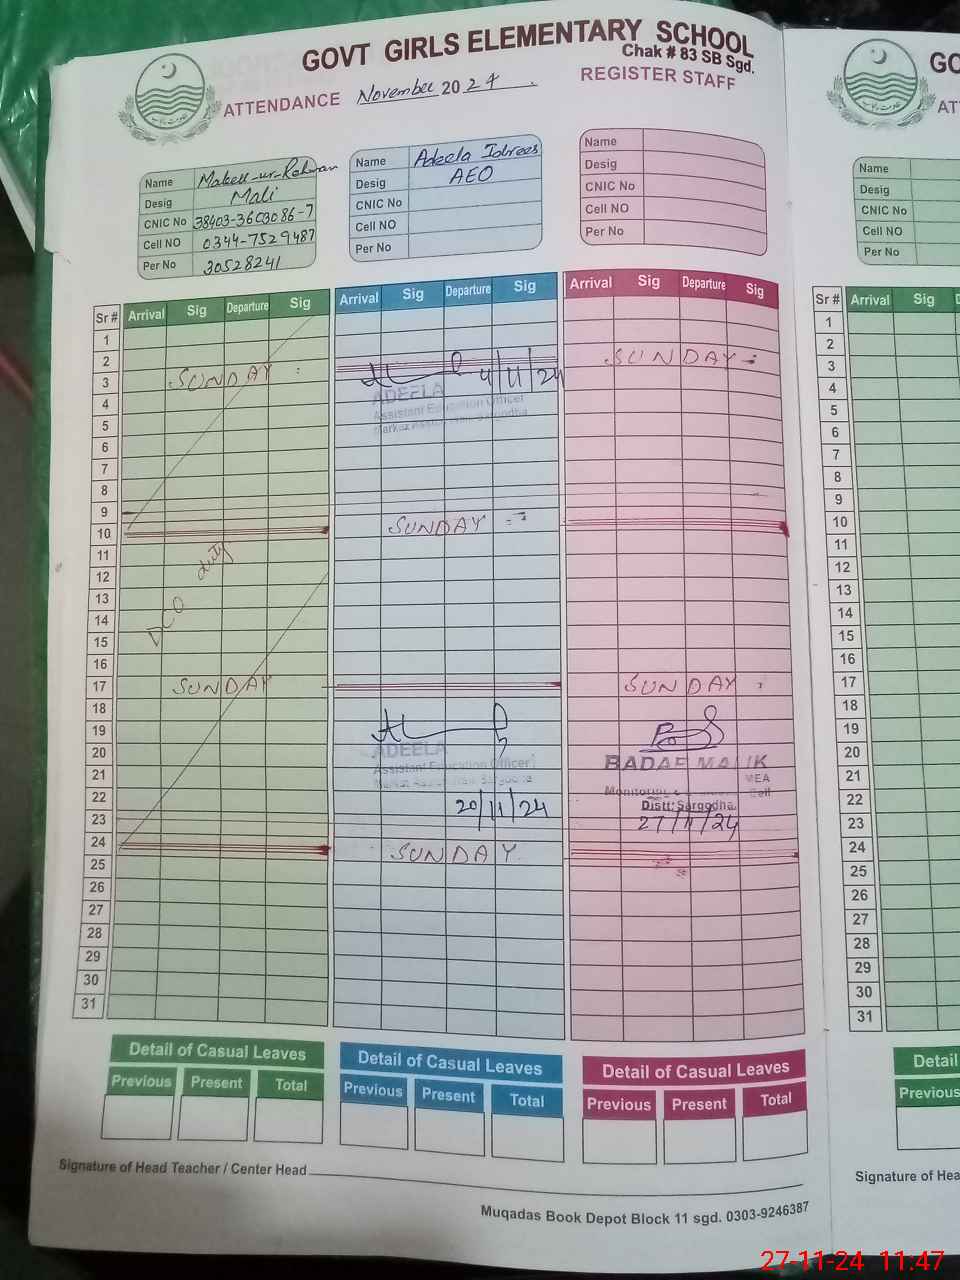 GOVT GIRLS ELEMENTARY SCHOOL
Chak # 83 SB Sgd.
ATTENDANCE November 2024 REGISTER STAFF
Name
Desig Mali
CNIC No 38403-3603086-7
Cell NO 0344-7529487
Per No 30528241
Name Adeela Idrees
Desig AEO
CNIC No
Cell NO
Per No
Name
Desig
CNIC No
Cell NO
Per No
Sr # Arrival Sig Departure Sig Arrival Sig Departure Sig Arrival Sig Departure Sig
1
2
3 SUNDAY SUNDAY
4/11/24
ADEELA
Assistant Education Officer
4
5
6
7
8
9
10 SUNDAY
11
12
13
14
15
16
duty
17 SUNDAY SUNDAY
18
19
20
21
22
23
ADEELA
Assistant Education Officer
20/11/24
MALIK
MEA
Distt: Sargodha.
27/11/24
24 SUNDAY
25
26
27
28
29
30
31
Detail of Casual Leaves
Previous Present Total
Detail of Casual Leaves
Previous Present Total
Detail of Casual Leaves
Previous Present Total
Signature of Head Teacher / Center Head
Muqadas Book Depot Block 11 sgd. 0303-9246387
GO
AT
Name
Desig
CNIC No
Cell NO
Per No
Sr # Arrival Sig D
1
2
3
4
5
6
7
8
9
10
11
12
13
14
15
16
17
18
19
20
21
22
23
24
25
26
27
28
29
30
31
Detail
Previous
Signature of Hea
27-11-24 11:47